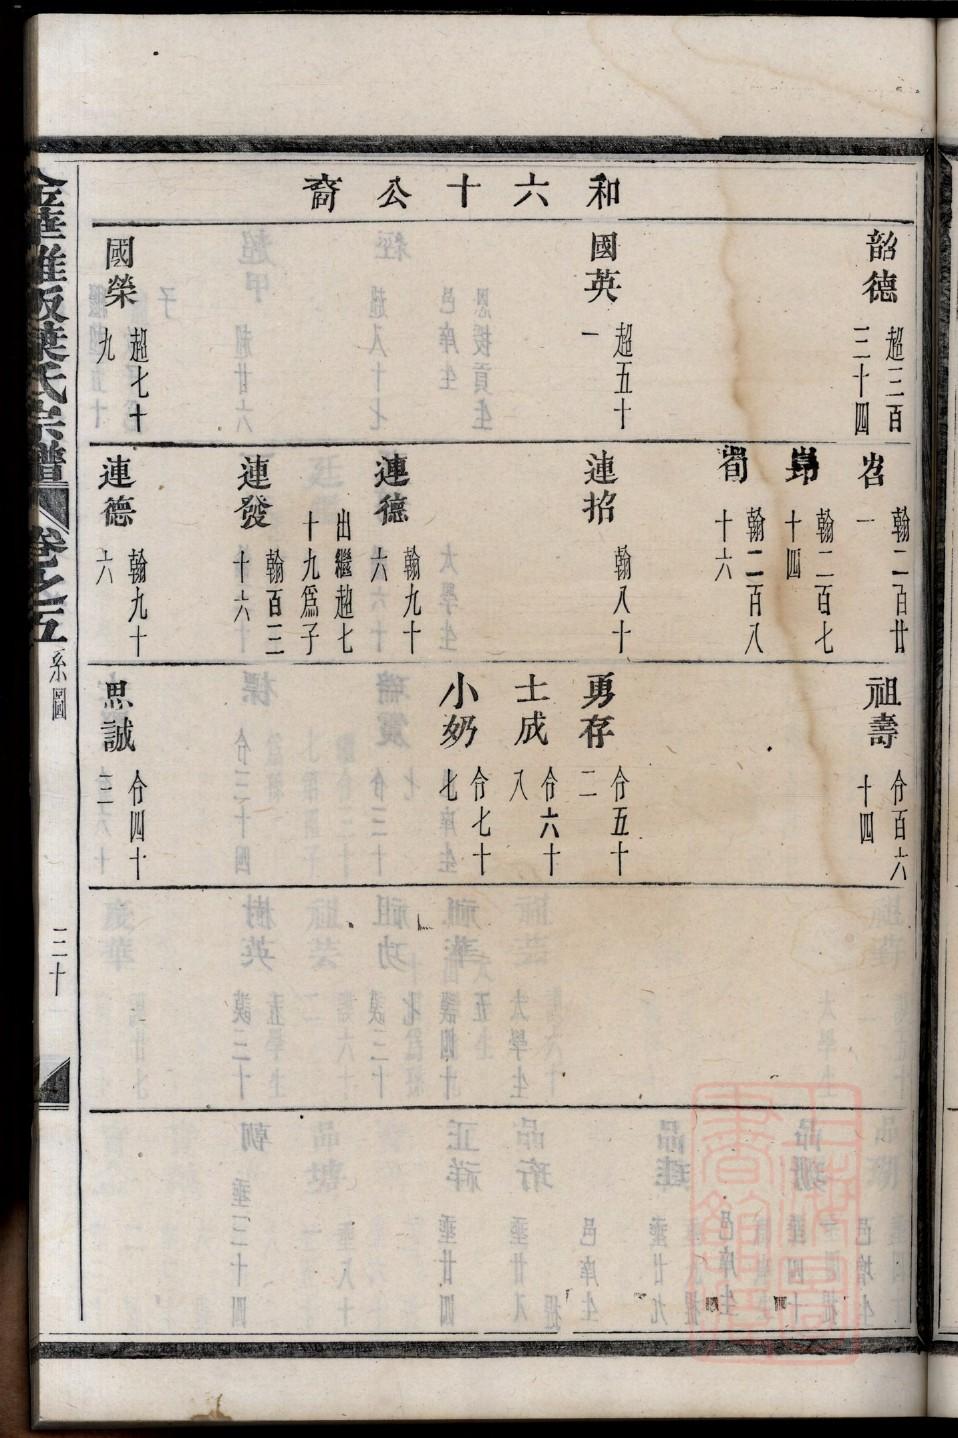 和六十公裔
韶德
超三百
三十四
國英
超五十
一
國榮
超七十
九
岧
翰二百廿
一
翰二百七
十四
荀
翰二百八
十六
連招
翰八十
連德
翰九十
六
出繼超七
十九爲子
連發
翰百三
十六
連德
翰九十
六
祖壽
份百六
十四
勇存
份五十
二
士成
份六十
八
小妎
份七十
七
思誠
份四十
三
葉氏宗譜
卷之五
系圖
三十